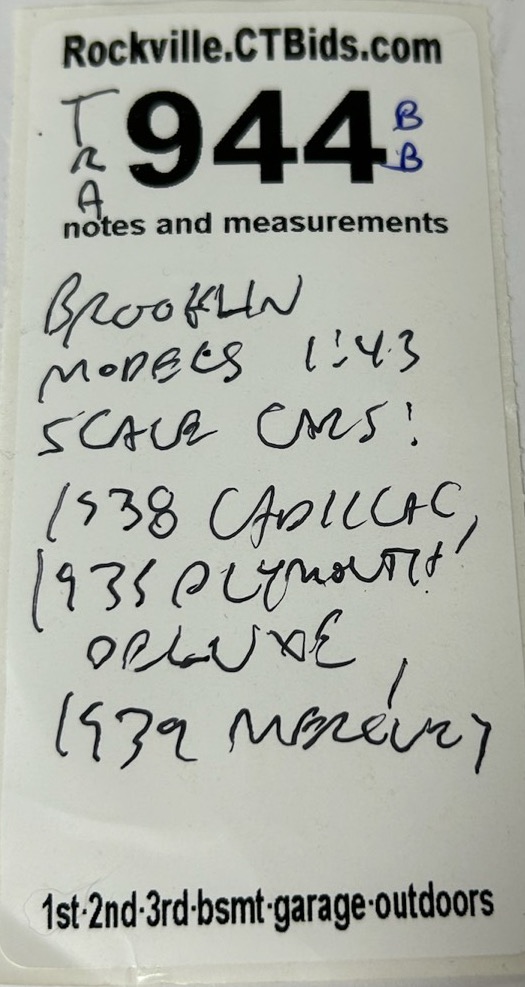 Rockville.CTBids.com
TRA 944 BB
notes and measurements
BROOKLIN
MODELS 1:43
SCALE CARS:
1938 CADILLAC,
1935 PLYMOUTH
DELUXE,
1939 MERCURY
1st·2nd·3rd·bsmt·garage·outdoors